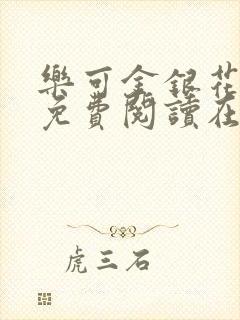 樂可金銀花
免費閱讀在
虎三石